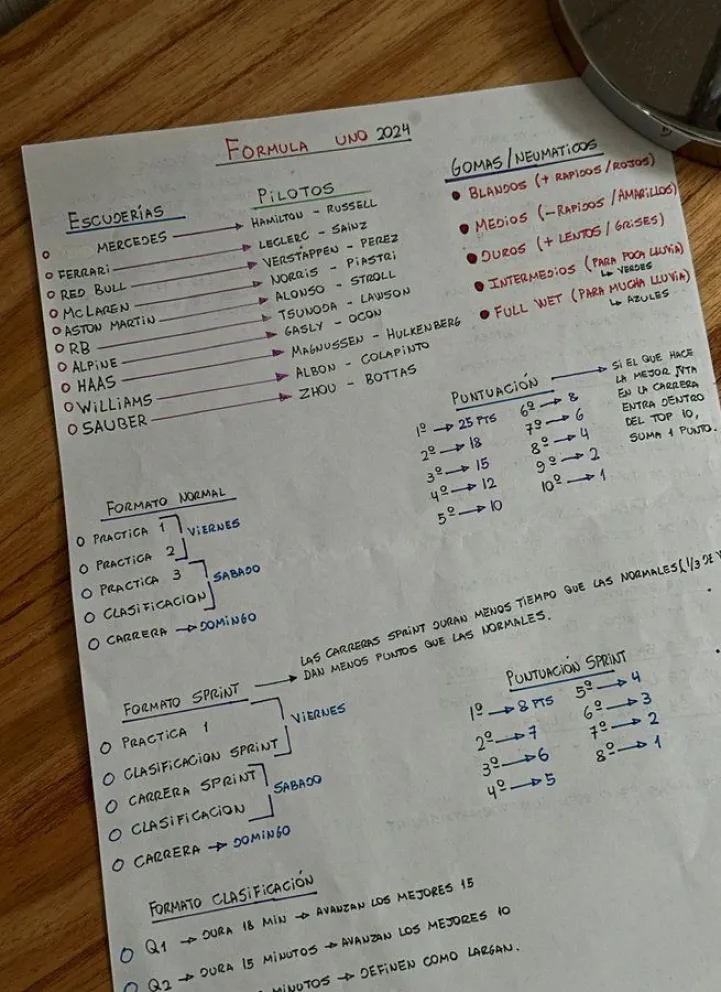 FORMULA UNO 2024
ESCUDERÍAS
PILOTOS
MERCEDES → HAMILTON - RUSSELL
FERRARI → LECLERC - SAINZ
RED BULL → VERSTAPPEN - PEREZ
McLAREN → NORRIS - PIASTRI
ASTON MARTIN → ALONSO - STROLL
RB → TSUNODA - LAWSON
ALPINE → GASLY - OCON
HAAS → MAGNUSSEN - HULKENBERG
WILLIAMS → ALBON - COLAPINTO
SAUBER → ZHOU - BOTTAS
GOMAS/NEUMATICOS
BLANDOS (+ RAPIDOS/ROJOS)
MEDIOS (-RAPIDOS/AMARILLOS)
DUROS (+ LENTOS/GRISES)
INTERMEDIOS (PARA POCA LLUVIA)
↳ VERDES
FULL WET (PARA MUCHA LLUVIA)
↳ AZULES
PUNTUACIÓN → SI EL QUE HACE
LA MEJOR VTA
EN LA CARRERA
ENTRA DENTRO
DEL TOP 10,
SUMA 1 PUNTO.
1º → 25 PTS
2º → 18
3º → 15
4º → 12
5º → 10
6º → 8
7º → 6
8º → 4
9º → 2
10º → 1
FORMATO NORMAL
PRACTICA 1
PRACTICA 2
VIERNES
PRACTICA 3
CLASIFICACION
SABADO
CARRERA → DOMINGO
FORMATO SPRINT → LAS CARRERAS SPRINT DURAN MENOS TIEMPO QUE LAS NORMALES (1/3 DE
DAN MENOS PUNTOS QUE LAS NORMALES.
PRACTICA 1
CLASIFICACION SPRINT
VIERNES
CARRERA SPRINT
CLASIFICACION
SABADO
CARRERA → DOMINGO
PUNTUACIÓN SPRINT
1º → 8 PTS
2º → 7
3º → 6
4º → 5
5º → 4
6º → 3
7º → 2
8º → 1
FORMATO CLASIFICACIÓN
Q1 → DURA 18 MIN → AVANZAN LOS MEJORES 15
Q2 → DURA 15 MINUTOS → AVANZAN LOS MEJORES 10
MINUTOS → DEFINEN COMO LARGAN.